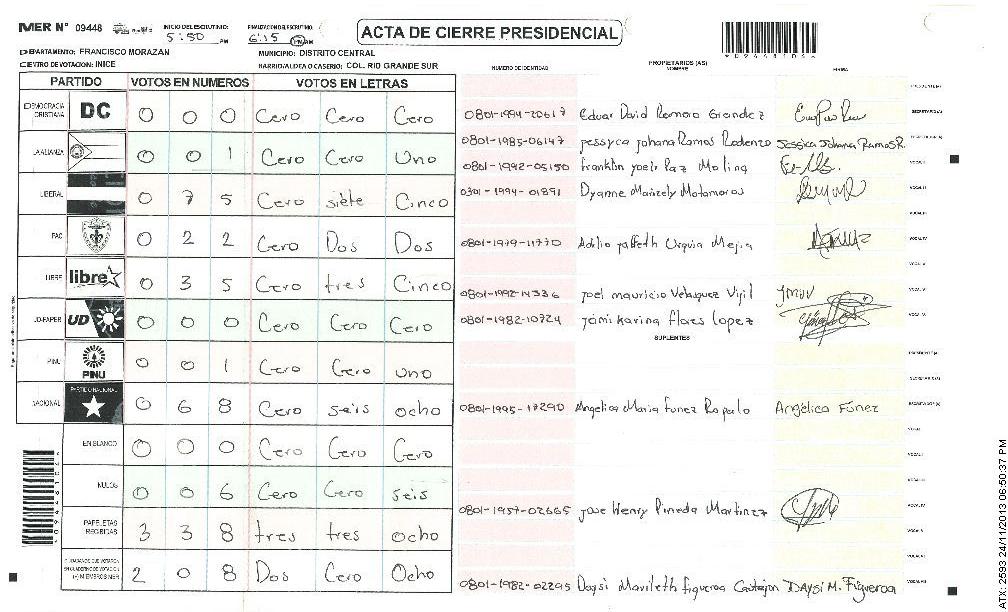 MER N° 09448 INICIO DEL ESCRUTINIO: 5:50 PM FINALIZACION DEL ESCRUTINIO: 6:15 PM AM ACTA DE CIERRE PRESIDENCIAL
DEPARTAMENTO: FRANCISCO MORAZAN MUNICIPIO: DISTRITO CENTRAL
CENTRO DE VOTACION: INICE BARRIO/ALDEA O CASERIO: COL. RIO GRANDE SUR
PARTIDO VOTOS EN NUMEROS VOTOS EN LETRAS NUMERO DE IDENTIDAD PROPIETARIOS (AS) NOMBRE FIRMA
DEMOCRACIA CRISTIANA DC 0 0 0 Cero Cero Cero 0801-1994-20617
LA ALIANZA 0 0 1 Cero Cero Uno 0801-1985-06147 Jessica Johana Ramos R.
0801-1992-05150
LIBERAL 0 7 5 Cero siete Cinco 0301-1994-01891
PAC 0 2 2 Cero Dos Dos 0801-1979-11770
LIBRE libre 0 3 5 Cero tres Cinco 0801-1992-14336 Joel mauricio Velasquez Vijil
UD-FAPER UD 0 0 0 Cero Cero Cero 0801-1982-10724 Jamikarina flores lopez
SUPLENTES
PINU PINU 0 0 1 Cero Cero uno
NACIONAL PARTIDO NACIONAL 0 6 8 Cero seis ocho 0801-1995-17290 Angelica Maria Funez Angélica Funez
EN BLANCO 0 0 0 Cero Cero Cero
NULOS 0 0 6 Cero Cero seis
PAPELETAS RECIBIDAS 3 3 8 tres tres ocho 0801-1957-02665 Jose Henry Pineda Martinez
CIUDADANOS QUE VOTARON 2 0 8 Dos Cero Ocho 0801-1982-02295 Daysi Marileth figueroa DAYSI M. Figueroa
ATX-2593 24/11/2013 06:50:37 PM